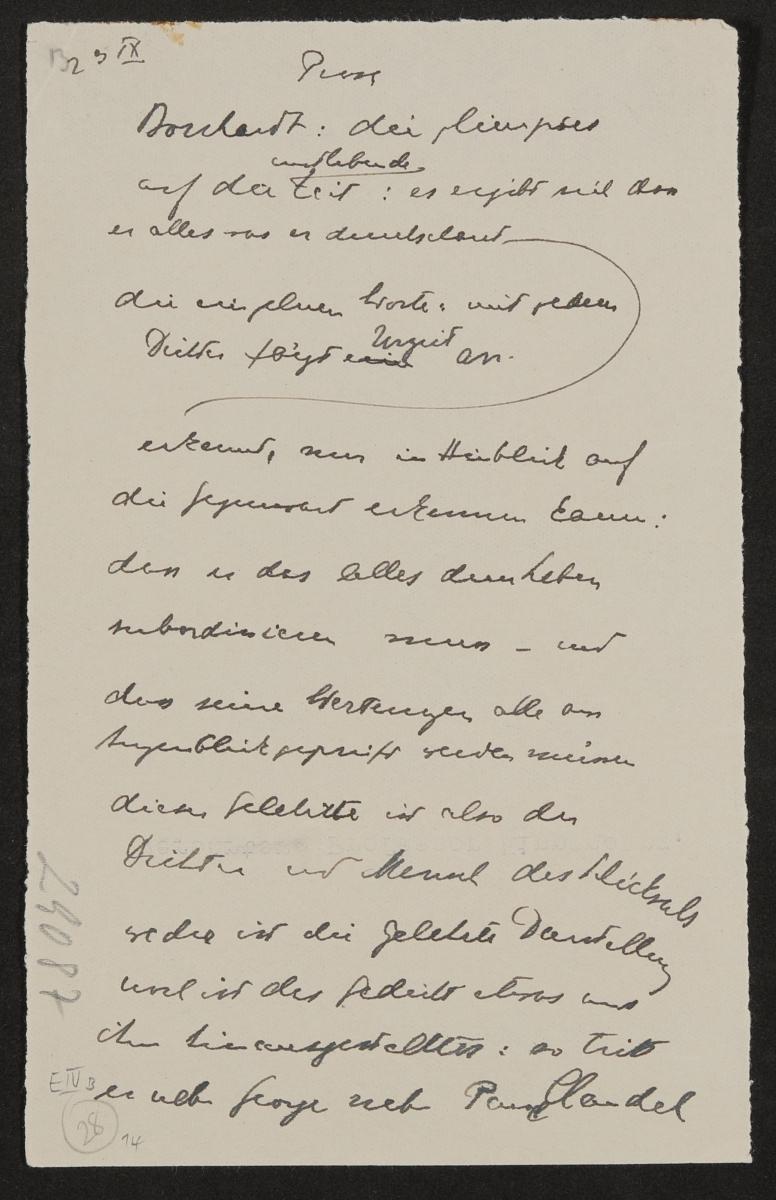 B 2 9 IX
Prosa
Borchardt: die glimpses
mitlebende
auf die Zeit: es ergibt sich dass
er alles was er durchschaut
die einzelnen Worte: mit jedem
Dichter fängt Urzeit an.
erkennt, nur in Hinblick auf
die Gegenwart erkennen kann:
dass er das alles dem Leben
subordinieren muss – und
dass seine Wertungen alle am
Augenblick geprüft werden müssen
dieser Gelehrte ist also der
Dichter und Mensch des Schicksals
weder ist die gelehrte Darstellung
noch ist das Gedicht etwas aus
ihm herausgestelltes: so tritt
er neben George neben Paul Claudel
29087
E IV B
28
14